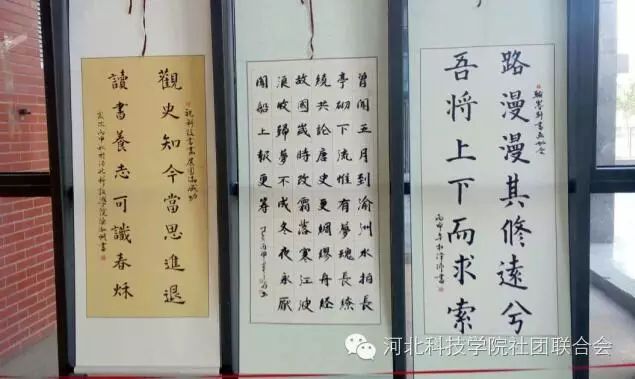 觀史知今當思進退
讀書養志可識春秋
祝科技書畫展圓滿成功
曾聞五月到渝州水拍長
亭砌下流惟有夢魂長繚
繞共論唐史更綢繆舟經
故國歲時改霜落寒江波
浪收歸夢不成冬夜永厭
聞船上報更籌
路漫漫其修遠兮
吾將上下而求索
河北科技学院社团联合会